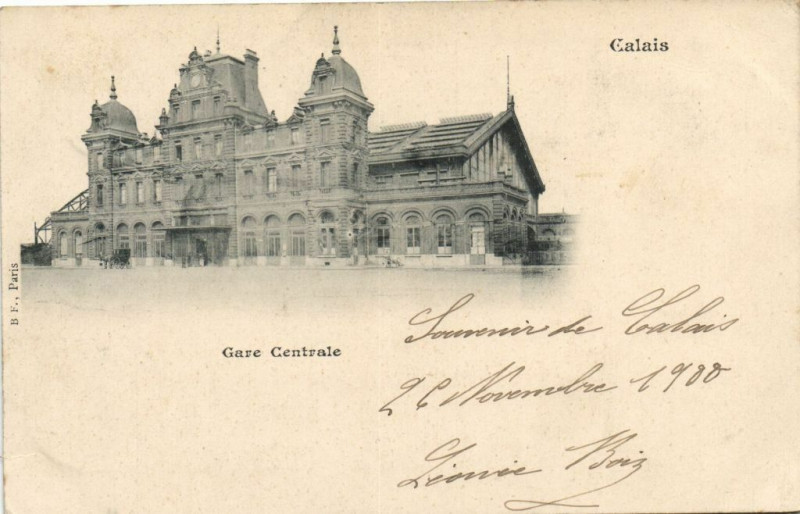 Calais
B F., Paris
Gare Centrale
Souvenir de Calais
26 Novembre 1900
Léonie Boiz